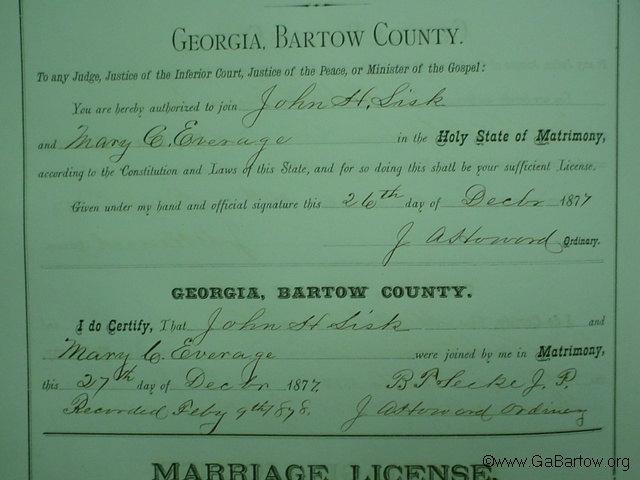 GEORGIA, BARTOW COUNTY.
To any Judge, Justice of the Inferior Court, Justice of the Peace, or Minister of the Gospel:
You are hereby authorized to join John H. Sisk
and Mary C. Everage in the Holy State of Matrimony,
according to the Constitution and Laws of this State, and for so doing this shall be your sufficient License.
Given under my hand and official signature this 26th day of Decbr 1877
J A Howard Ordinary.
GEORGIA, BARTOW COUNTY.
I do Certify, That John H Sisk and
Mary C. Everage were joined by me in Matrimony,
this 27th day of Decbr 1877. J. P.
Recorded Feby 9th 1878. J A Howard Ordinary
MARRIAGE LICENSE.
©www.GaBartow.org